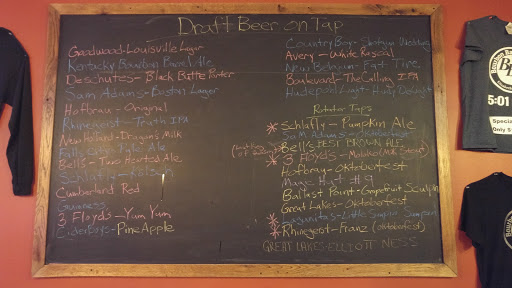 Draft Beer on Tap
Goodwood-Louisville Lager
Kentucky Bourbon Barrel Ale
Deschutes-Black Butte Porter
Sam Adams-Boston Lager
Hofbrau-Original
Rhinegeist-Truth IPA
New Holland-Dragon's Milk
Falls City Pale Ale
Bell's-Two Hearted Ale
Schlafly-Kolsch
Cumberland Red
Guinness
3 Floyds-Yum Yum
Ciderboys-Pine Apple
Country Boy-Shotgun Wedding
Avery-White Rascal
New Belgium-Fat Tire
Boulevard-The Calling IPA
Hudepohl Light-Hudy Delight
Rotator Taps
* Schlafly-Pumpkin Ale
Sam Adams-Oktoberfest
Bell's BEST BROWN ALE
* 3 Floyds-(Milk Stout)
Hofbrau-Oktoberfest
Magic Hat #9
Ballast Point-Grapefruit Sculpin
Great Lakes-Oktoberfest
* Lagunitas-Little Sumpin Sumpin
* Rhinegeist-Franz (oktoberfest)
GREAT LAKES-ELLIOTT NESS
5:01
Special
Only